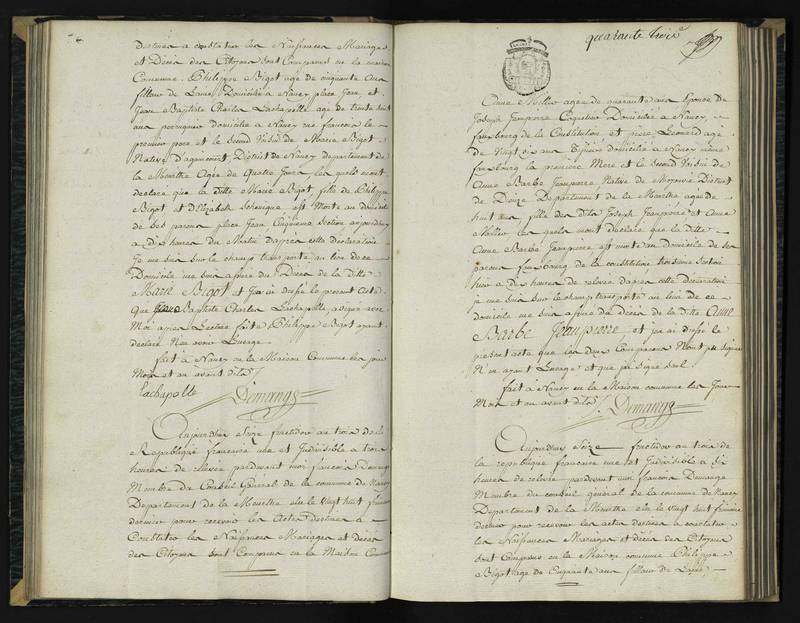 destinés a constater les Naissances Mariages
et Décès des Citoyens sont Comparus en la maison
Commune. Philippe Bigot agé de cinquante ans
fileur de Laine, Domicilié a Nancy place Jean et
Jean Baptiste Charles Lachapelle agé de trente huit
ans perruquier domicilié a Nancy rue françois le
premier pere et le second Voisin de Marie Bigot
Native d'agincourt District de Nancy departement de
la Meurthe Agée de Quatre Jours, les quels m'ont
declaré que la ditte Marie Bigot, fille de Philippe
Bigot et d'Elizabeth est Morte au domicile
de ses parens place Jean Cinquieme Section aujourdhuy
a Dix heures du Matin d'après cette déclaration
Je me suis sur le champ transporté au lieu de ce
Domicile me suis assuré du Décès de la ditte
Marie Bigot et J'en ai dressé le present Acte
Que Jean Baptiste Charles Lachapelle a signé avec
Moi après Lecture faite Philippe Bigot ayant
declaré N'en avoir L'usage.
fait a Nancy en la Maison Commune les jour
Mois et an avant dits /.
lachapelle Demange
Aujourdhui Seize fructidor an trois de la
République française une et Indivisible a trois
heures de relevée pardevant moi francois Demange
Membre du Conseil Général de la commune de Nancy
Departement de la Meurthe élu le vingt huit frimaire
dernier pour recevoir les Actes destinés a
Constater les Naissances Mariages et décès
des Citoyens sont Comparus en la Maison Commune
quarante trois
Anne Mallew agée de quarante ans Epouse de
Joseph Jeanpierre Coquetier Domiciliée a Nancy,
fauxbourg de la Constitution et pierre Léonard agé
de Vingt six ans Epicier domicilié a Nancy meme
fauxbourg la première Mere et le second Voisin de
Anne Barbe Jeanpierre Native de Moyenvic District
de Dieuze Departement de la Meurthe agée de
huit ans, fille des dits Joseph Jeanpierre et Anne
Mallew les quels m'ont déclaré que la ditte
Anne Barbe Jeanpierre est morte au Domicile de ses
parens fauxbourg de la constitution troisieme Section
hier a Dix heures de relevée d'après cette déclaration
je me suis sur le champ transporté au lieu de ce
domicile me suis assuré du décès de la ditte Anne
Barbe Jeanpierre et j'en ai dressé le
present acte que les deux Comparans N'ont pu signer
N'en ayant L'usage et que j'ai Signé seul.
fait a Nancy en la Maison commune les Jour
Mois et an avant dits /. Demange
Aujourdhui Seize fructidor an trois de
la republique française une et Indivisible a Six
heures de relevée pardevant moi françois Demange
Membre du conseil général de la commune de Nancy
Departement de la Meurthe élu le vingt huit frimaire
dernier pour recevoir les actes destinés a constater
les Naissances Mariages et décès des Citoyens
sont Comparus en la Maison commune Philippe
Bigot agé de Cinquante ans fileur de Laine,